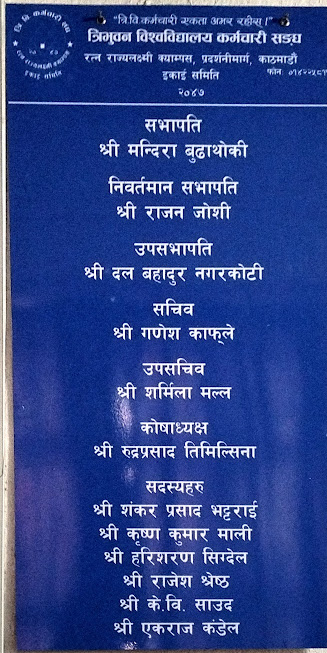 "त्रि.वि.कर्मचारी एकता अमर रहोस् ।"
त्रिभुवन विश्वविद्यालय कर्मचारी सङ्घ
रत्न राज्यलक्ष्मी क्याम्पस, प्रदर्शनीमार्ग, काठमाडौं
इकाई समिति
फोन:
२०४७
सभापति
श्री मन्दिरा बुढाथोकी
निवर्तमान सभापति
श्री राजन जोशी
उपसभापति
श्री दल बहादुर नगरकोटी
सचिव
श्री गणेश काफ्ले
उपसचिव
श्री शर्मिला मल्ल
कोषाध्यक्ष
श्री रुद्रप्रसाद तिमिल्सिना
सदस्यहरु
श्री शंकर प्रसाद भट्टराई
श्री कृष्ण कुमार माली
श्री हरिशरण सिग्देल
श्री राजेश श्रेष्ठ
श्री के.वि. साउद
श्री एकराज कंडेल